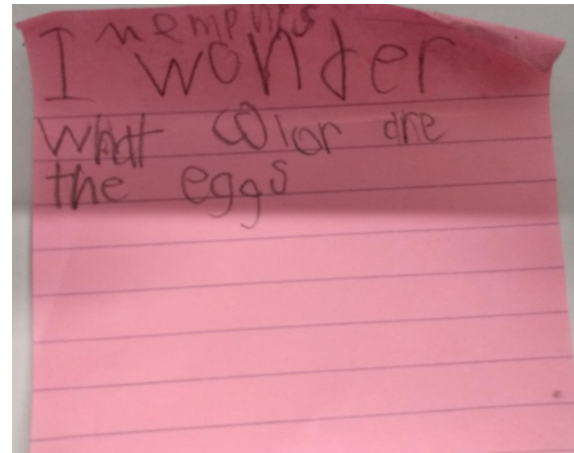 Memphis
I wonder
What color are
the eggs